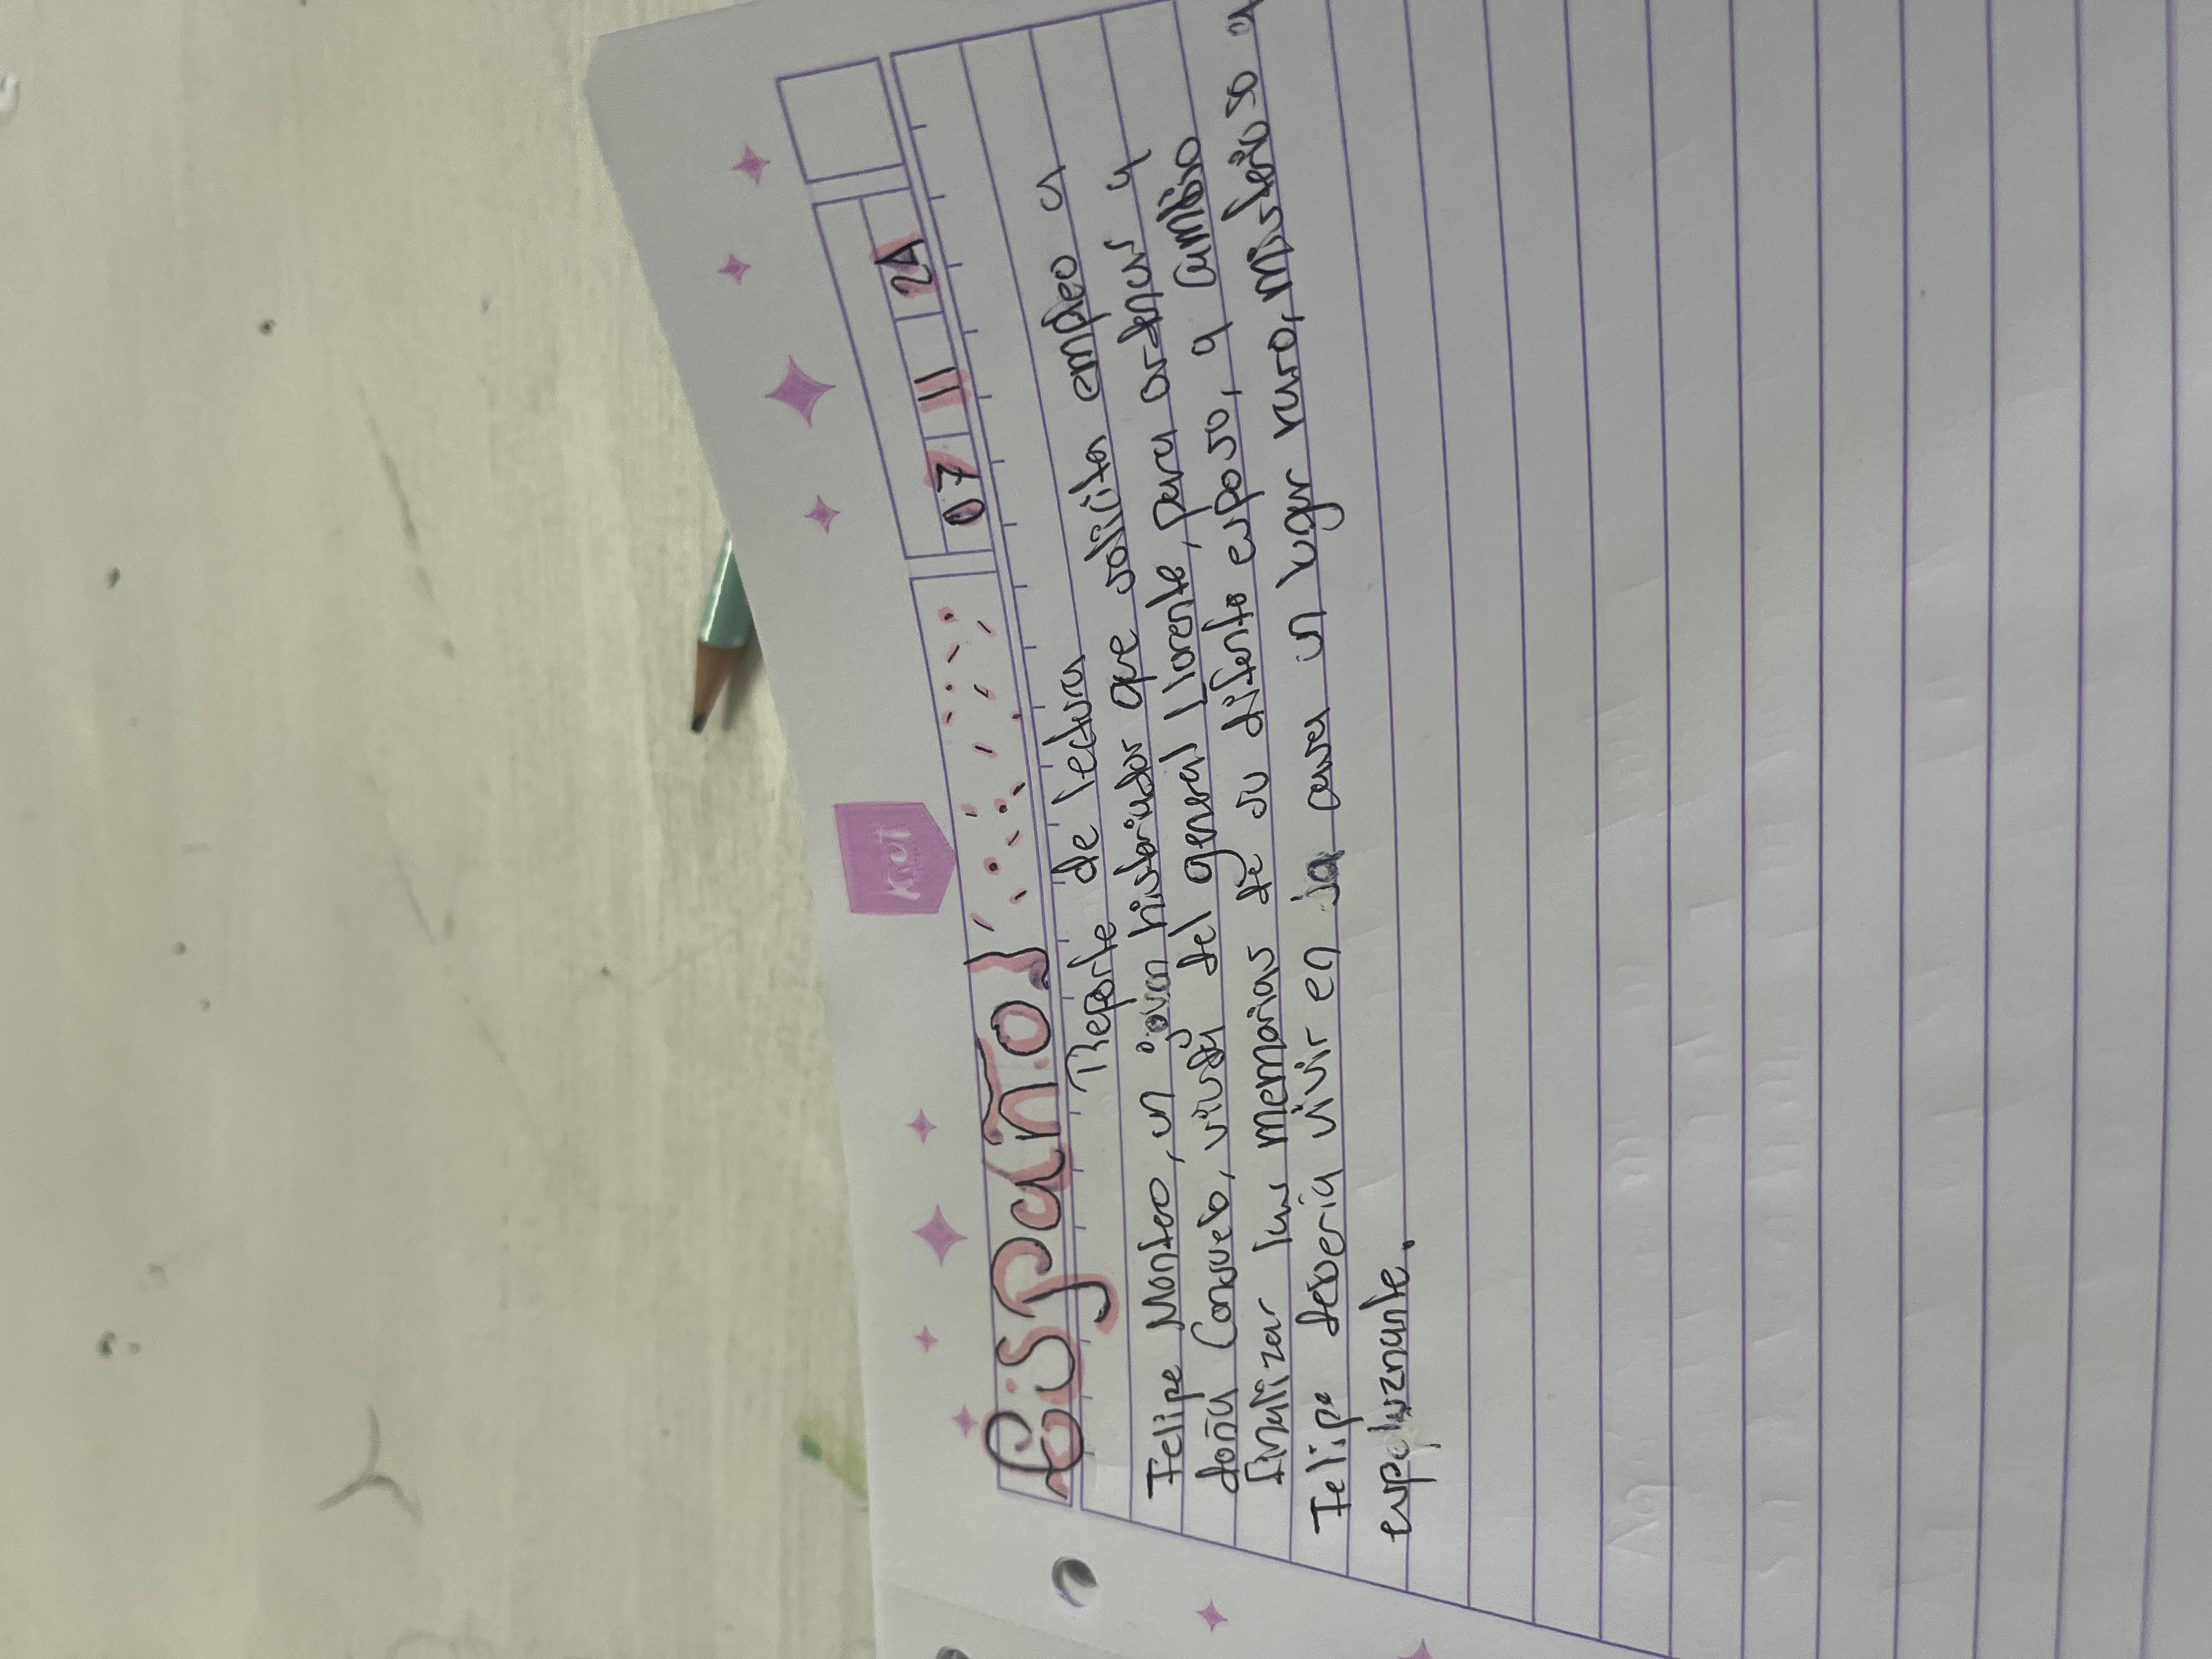 Español
Kiut
07 11 24
Reporte de lectura
Felipe Montero, un joven historiador que solicita empleo a
doña Consuelo, viuda del general Llorente, para ordenar y
finalizar las memorias de su difunto esposo, y cambio
Felipe debería vivir en la casa un lugar raro, misterioso y
espeluznante.